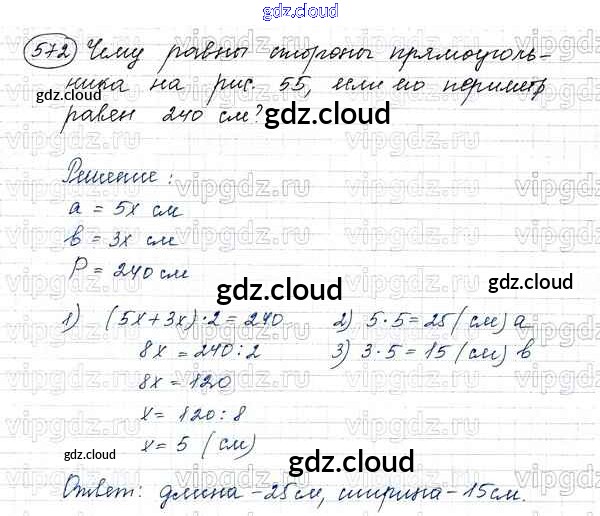 gdz.cloud
572 Чему равны стороны прямоуголь-
ника на рис. 55, если его периметр
gdz.cloud
равен 240 см?
gdz.cloud
Решение:
vipgdz.ru
a = 5x см
b = 3x см
P = 240 см
gdz.cloud
1) (5x+3x)·2=240 2) 5·5=25 (см) a
8x = 240:2 3) 3·5=15 (см) b
gdz.cloud
8x = 120
x = 120:8
x = 5 (см)
gdz.cloud
gdz.cloud
Ответ: длина-25см, ширина-15см.